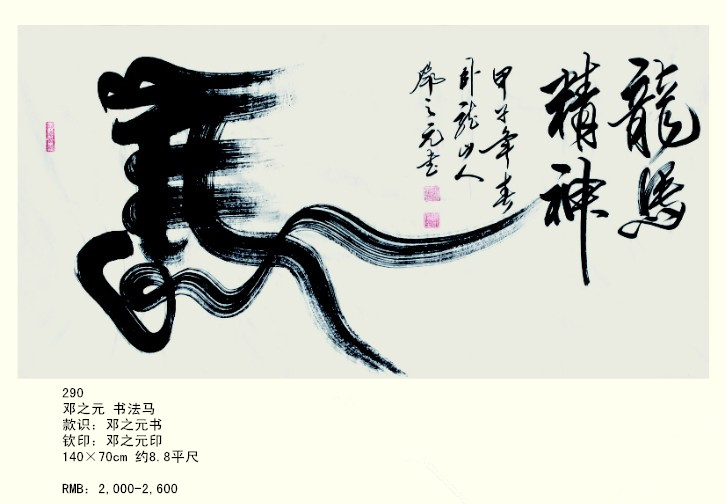 龍馬
精神
甲午年春
卧龍山人
鄧之元書
290
邓之元 书法马
款识：邓之元书
钦印：邓之元印
140×70cm 约8.8平尺
RMB：2,000-2,600